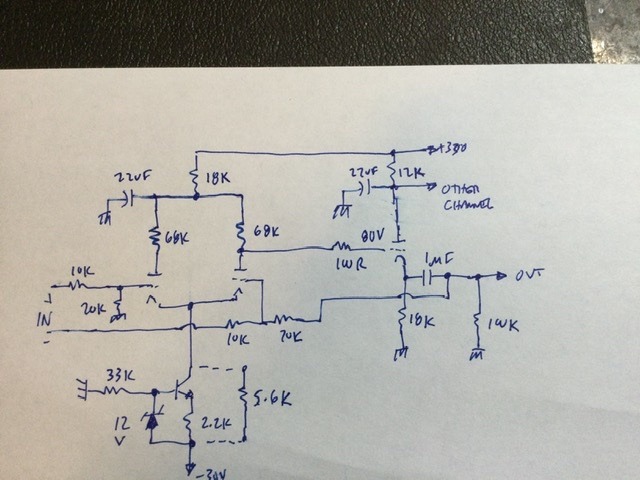 +300
22uF
18K
22uF
12K
OTHER
CHANNEL
68K
68K
80V
100R
1MF
OUT
10K
20K
+
IN
-
10K
20K
18K
100K
33K
5.6K
12
V
2.2K
-30V